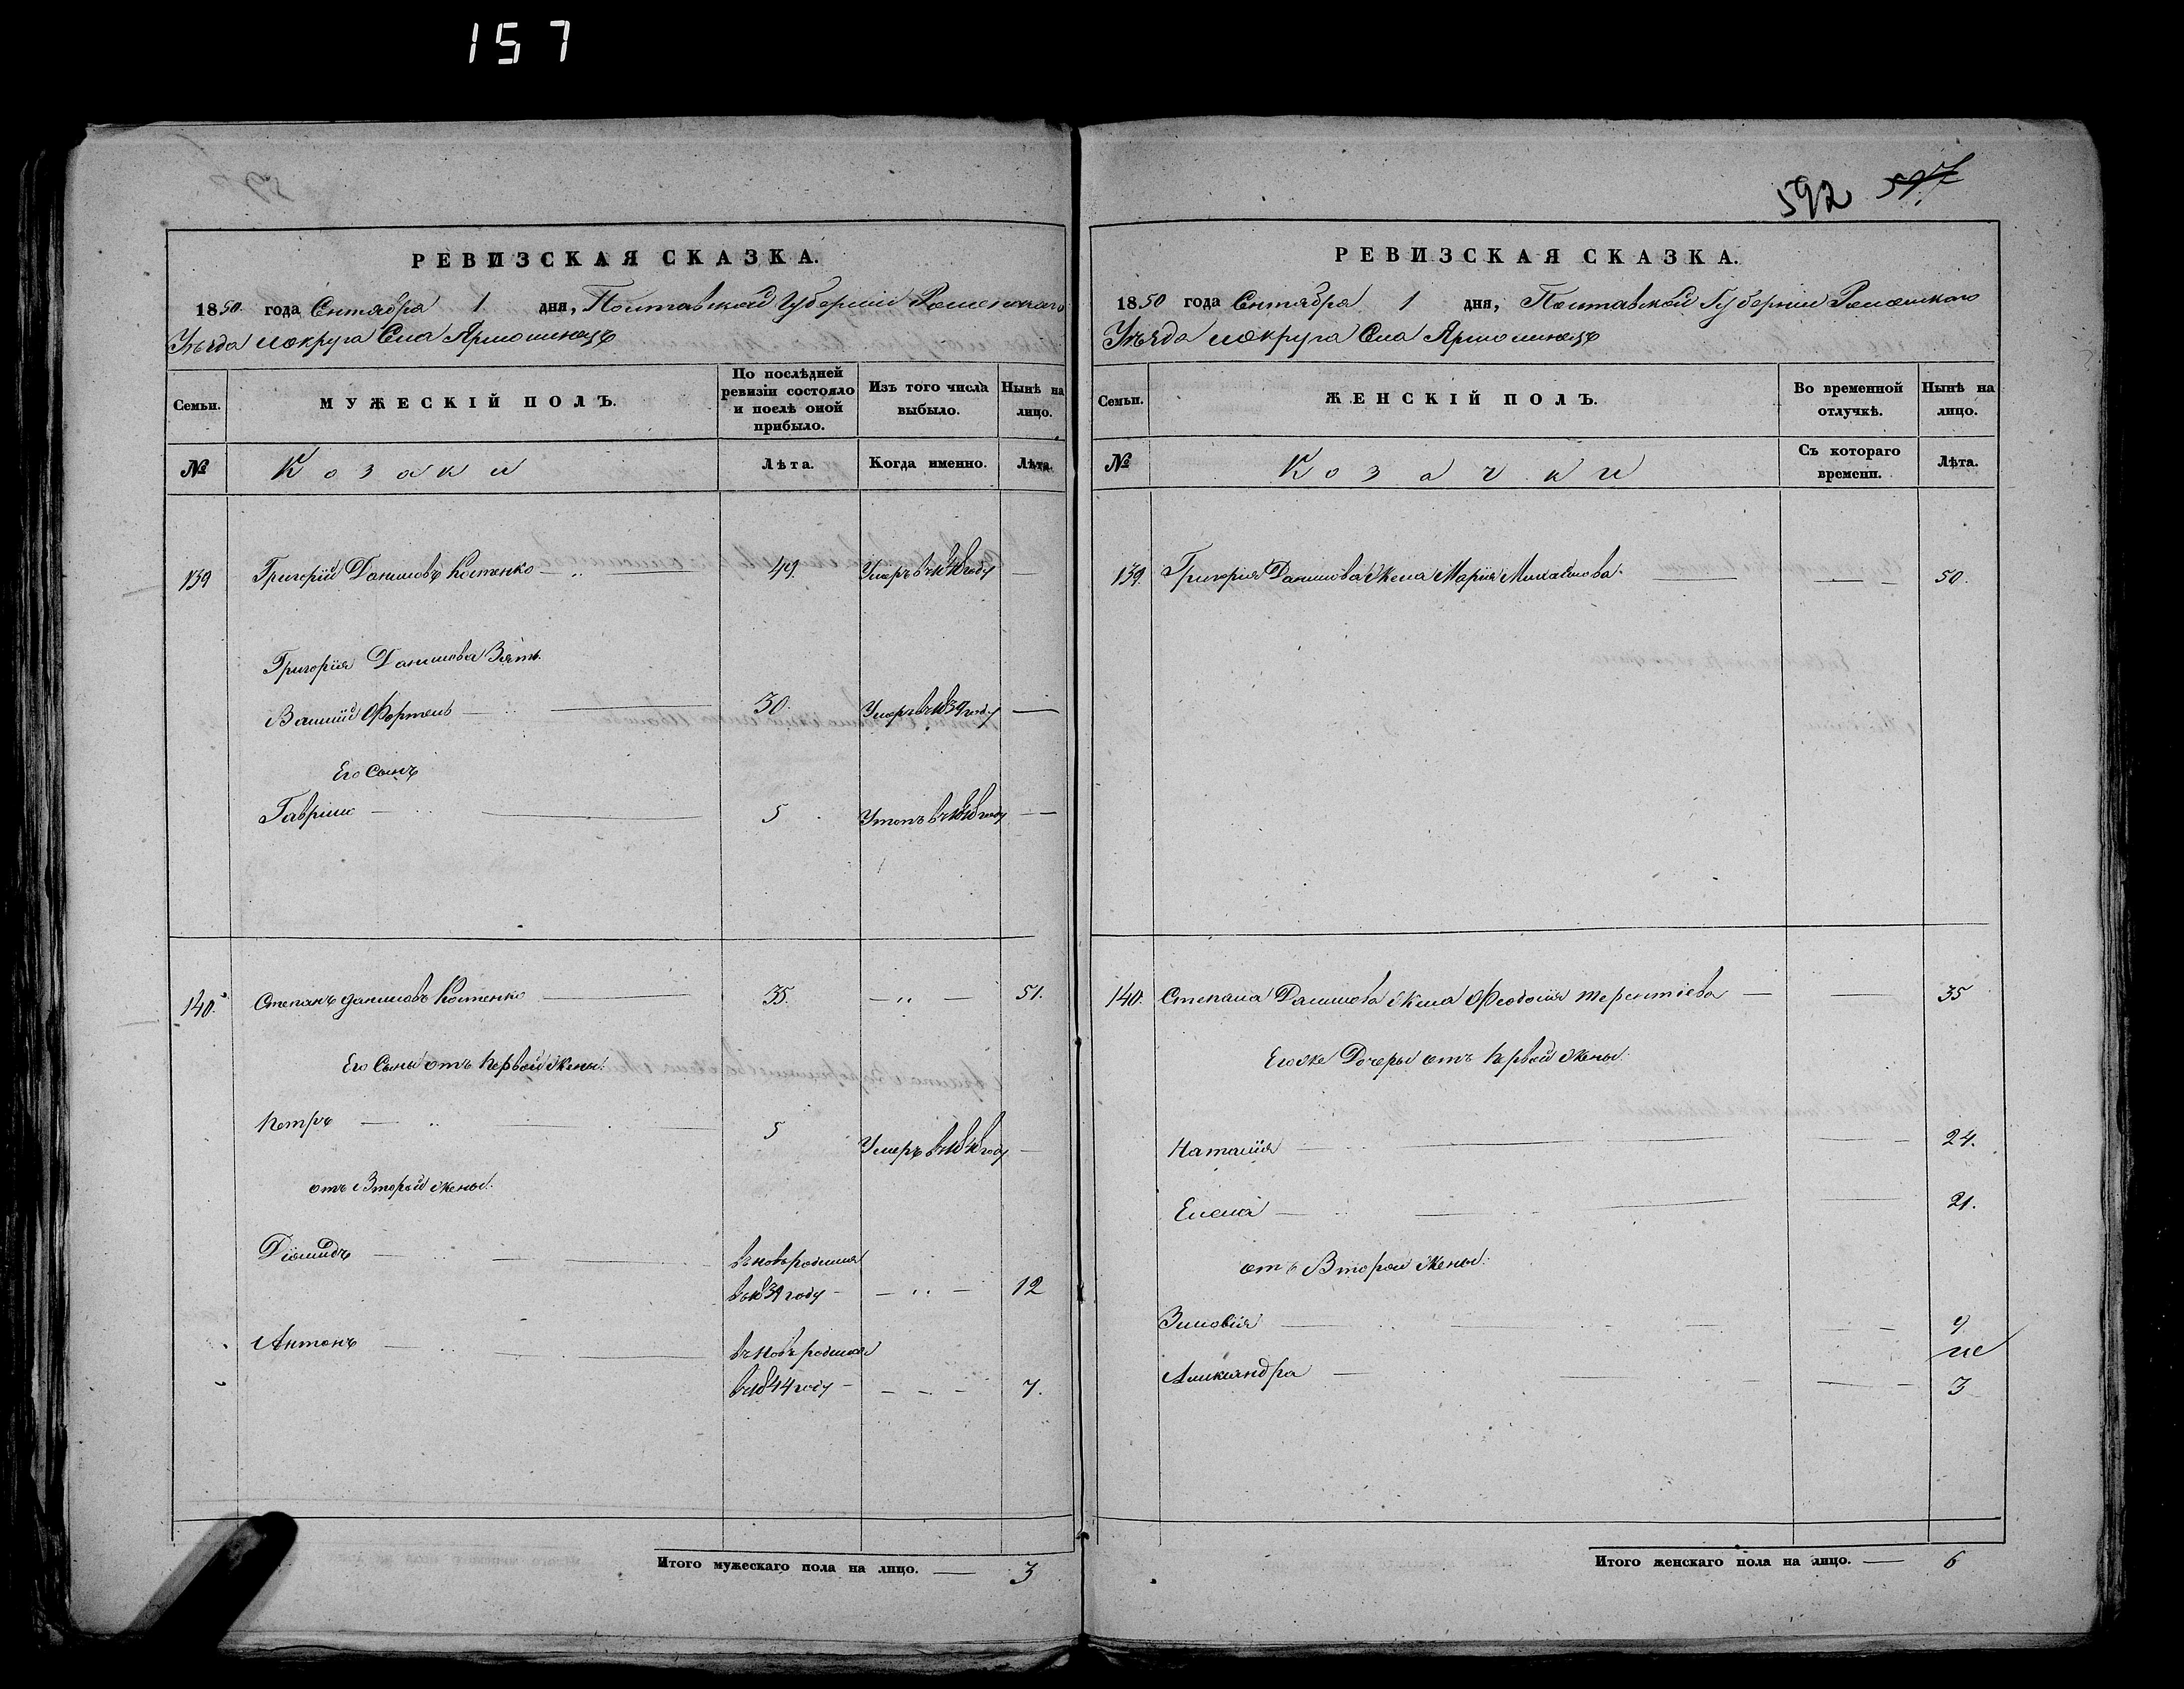 157
РЕВИЗСКАЯ СКАЗКА.
1850 года Сентября 1 дня, Полтавской Губернии Роменскаго
Уѣзда и округа Села Ярмолинецъ
Семьи.
МУЖЕСКІЙ ПОЛЪ.
По послѣдней ревизіи состояло и послѣ оной прибыло.
Изъ того числа выбыло.
Нынѣ на лицо.
№
Козаки
Лѣта.
Когда именно.
Лѣта.
139 Григорій Даниловъ Костенко 49. Умеръ в
Григорія Данилова Зять
Василій 30. Умеръ в 1839 году
Его Сынъ
Гавріилъ 5
140. Степанъ Даниловъ Костенко 35. 51.
Его Сыны отъ первой жены:
Петръ 5 Умеръ в
отъ Второй жены:
Діомидъ вновь родился
в 1839 году 12
Антонъ вновь родился
в 1844 году 7.
Итого мужескаго пола на лицо. 3
592 597
РЕВИЗСКАЯ СКАЗКА.
1850 года Сентября 1 дня, Полтавской Губернии Роменскаго
Уѣзда и округа Села Ярмолинецъ
Семьи.
ЖЕНСКІЙ ПОЛЪ.
Во временной отлучкѣ.
Нынѣ на лицо.
№
Козачки
Съ котораго времени.
Лѣта.
139. Григорія Данилова жена Марія Михайлова 50.
140. Степана Данилова жена Феодосія Терентіева 35
Его же Дочеры отъ первой жены:
Наталія 24.
Елена 21.
отъ Второй жены:
Зиновія 9
Александра 3
Итого женскаго пола на лицо. 6